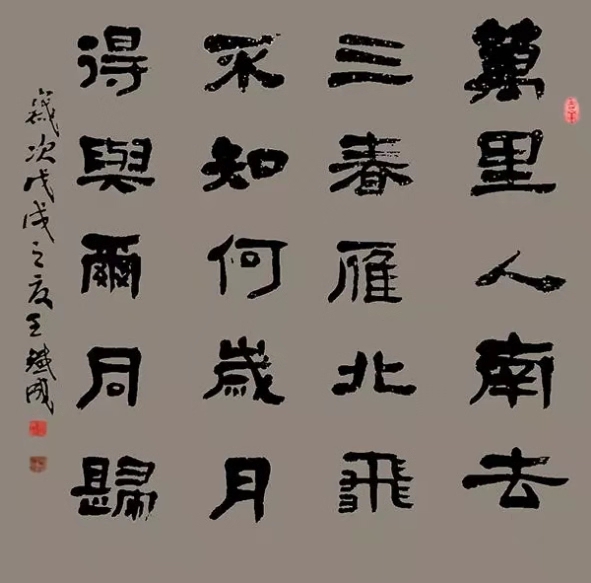 萬里人南去
三春雁北飛
不知何歲月
得與爾同歸
歲次戊戌之夏王斌成